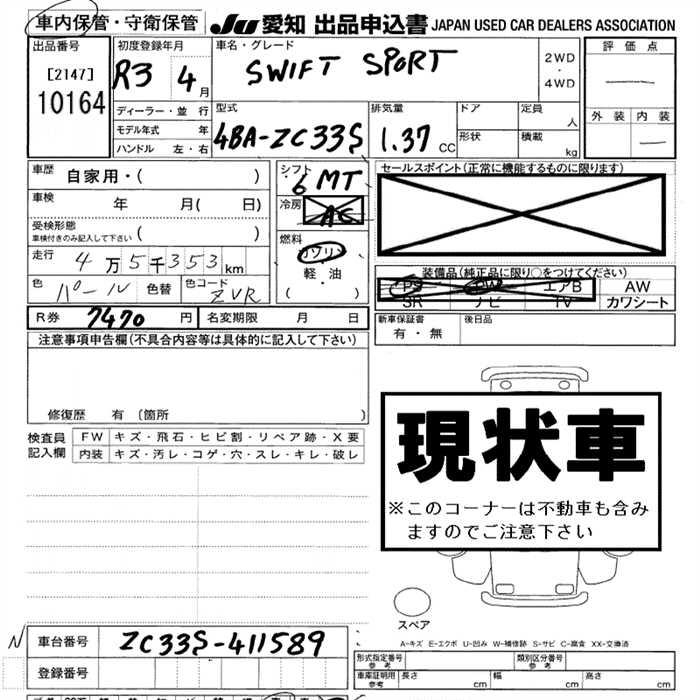 車内保管・守衛保管 JU 愛知 出品申込書 JAPAN USED CAR DEALERS ASSOCIATION
出品番号 初度登録年月 車名・グレード 評価点
[2147] R3 4月 SWIFT SPORT 2WD・4WD
10164 外装 内装
ディーラー・並行 型式 排気量 ドア 定員 人
モデル年式 年 4BA-ZC33S 1.37 CC 形状 積載 kg
ハンドル 左・右
車歴 自家用・( ) シフト 6MT セールスポイント(正常に機能するものに限ります)
車検 年 月( 日) 冷房 AC
受検形態
車検付きのみ記入して下さい ( ) 燃料
走行 4万5千353km ガソリン 装備品(純正品に限り○をつけてください)
軽・油 PS PW エアB AW
色 パール 色替 色コード ZVR ( ) SR ナビ TV カワシート
R券 7470 円 名変期限 月 日 新車保証書 後日品
有・無
注意事項申告欄(不具合内容等は具体的に記入して下さい)
修復歴 有 (箇所 )
検査員 FW キズ・飛石・ヒビ割・リペア跡・X要
記入欄 内装 キズ・汚レ・コゲ・穴・スレ・キレ・破レ
現状車
※このコーナーは不動車も含み
ますのでご注意下さい
スペア
A-キズ E-エクボ U-凹み W-補修跡 S-サビ C-腐食 XX-交換済
N 車台番号 ZC33S-411589
形式指定番号 参考 類別区分番号 参考
登録番号 車庫証明用 参考 長さ cm 幅 cm 高さ cm